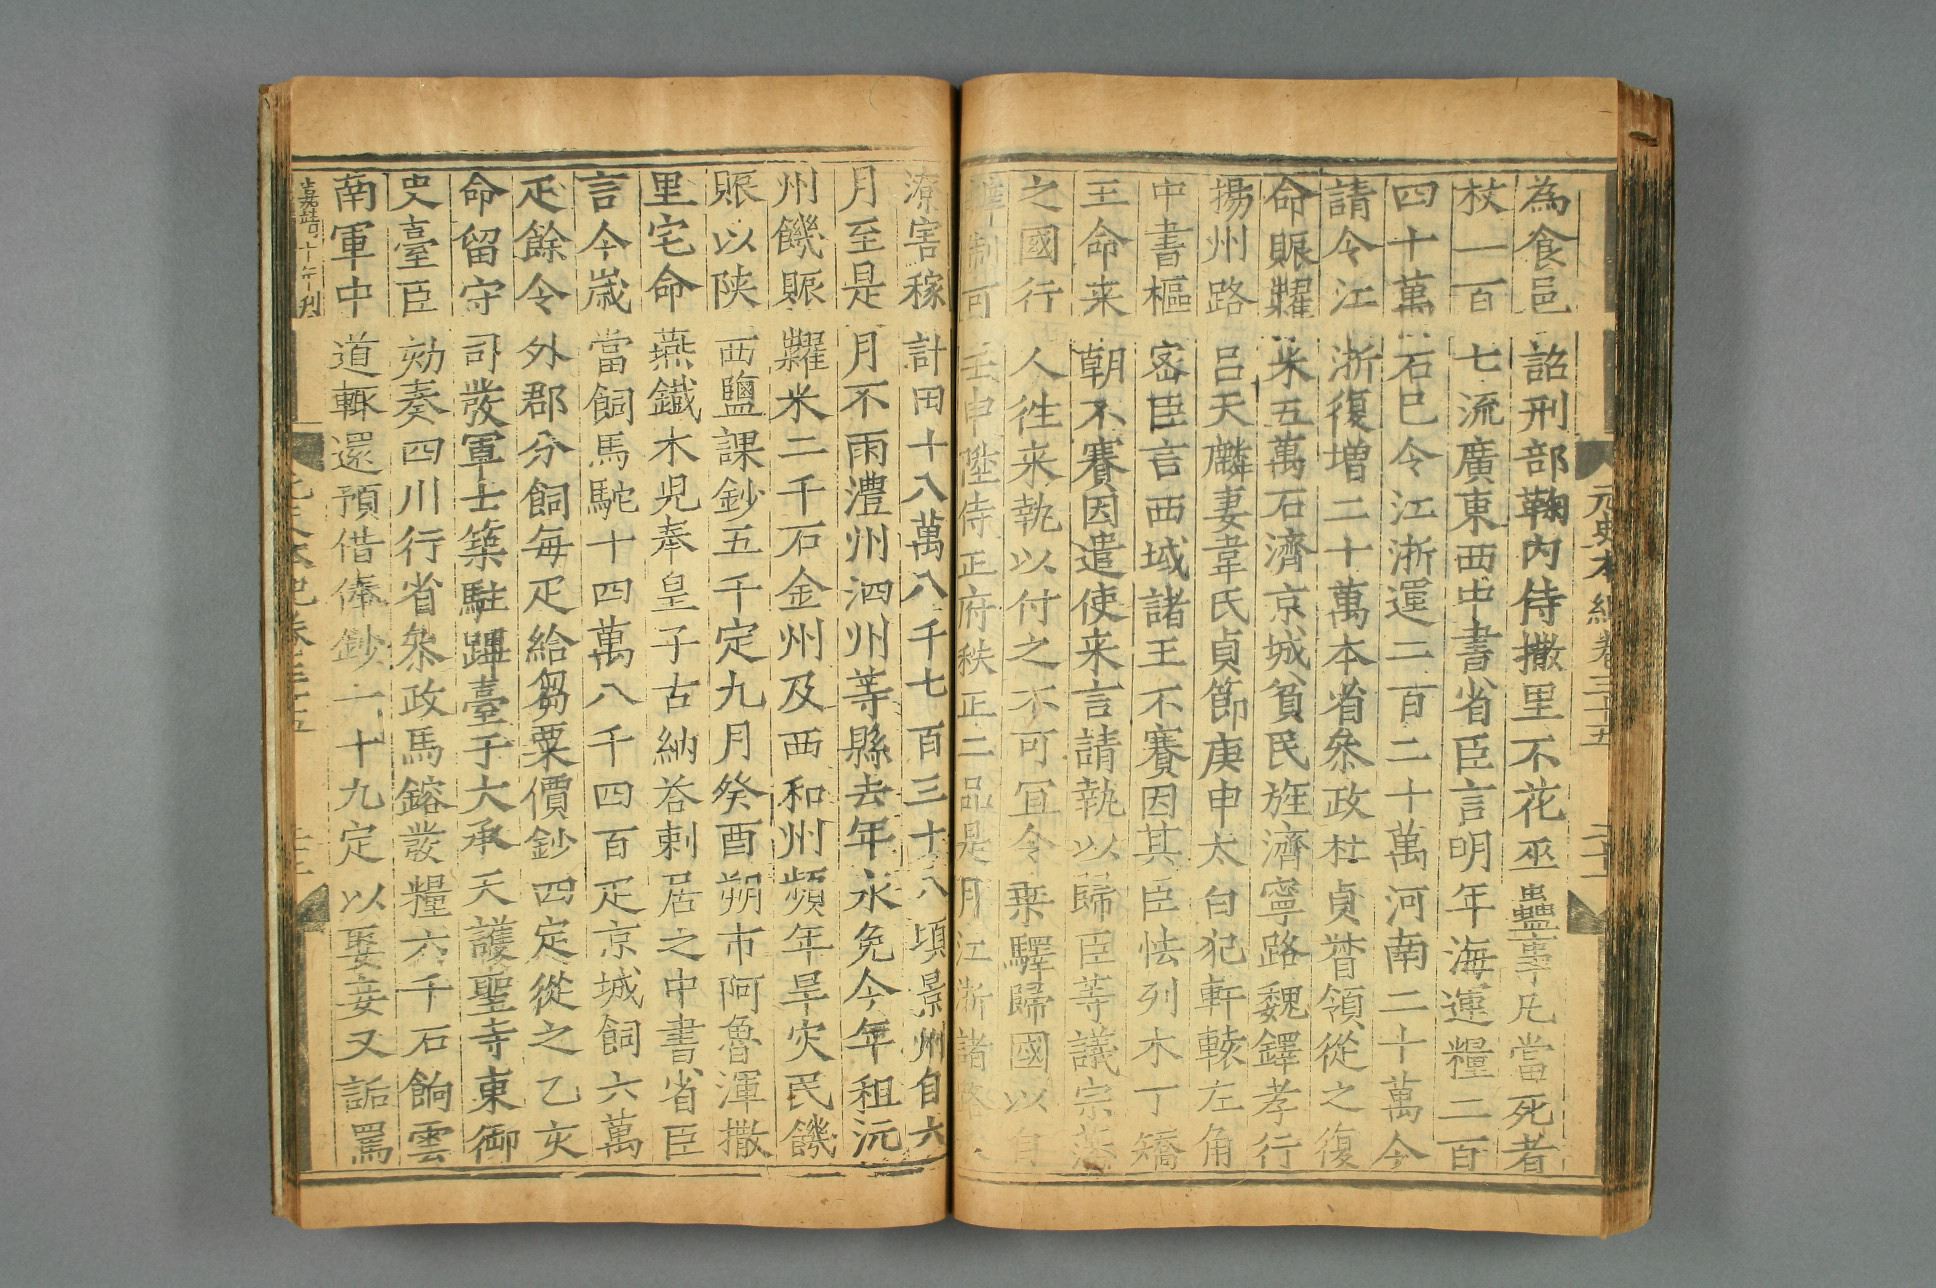 為食邑詔刑部鞫內侍撒里不花巫蠱事凡當死者
杖一百七流廣東西中書省臣言明年海運糧二百
四十萬石已令江浙運二百二十萬河南二十萬今
請令江浙復增二十萬本省叅政杜貞督領從之復
命賑糶米五萬石濟京城貧民旌濟寧路魏鐸孝行
揚州路呂天麟妻韋氏貞節庚申太白犯軒轅左角
中書樞密臣言西域諸王不賽因其臣怯列木丁矯
王命来朝不賽因遣使来言請執以歸臣等議宗藩
之國行人徃来執以付之不可宜令乗驛歸國以自
辨制可壬申陞侍正府秩正二品是月江浙諸路水
潦害稼計田十八萬八千七百三十八頃景州自六
月至是月不雨澧州泗州等縣去年水免今年租沅
州饑賑糶米二千石金州及西和州頻年旱灾民饑
賑以陝西鹽課鈔五千定九月癸酉朔市阿魯渾撒
里宅命燕鐵木兒奉皇子古納荅剌居之中書省臣
言今歲當飼馬駝十四萬八千四百疋京城飼六萬
疋餘令外郡分飼每疋給芻粟價鈔四定從之乙亥
命留守司發軍士築駐蹕臺于大承天護聖寺東御
史臺臣劾奏四川行省叅政馬鎔發糧六千石餉雲
南軍中道輒還預借俸鈔一十九定以娶妾又詬罵
元史本紀卷三十五
嘉靖十年刊